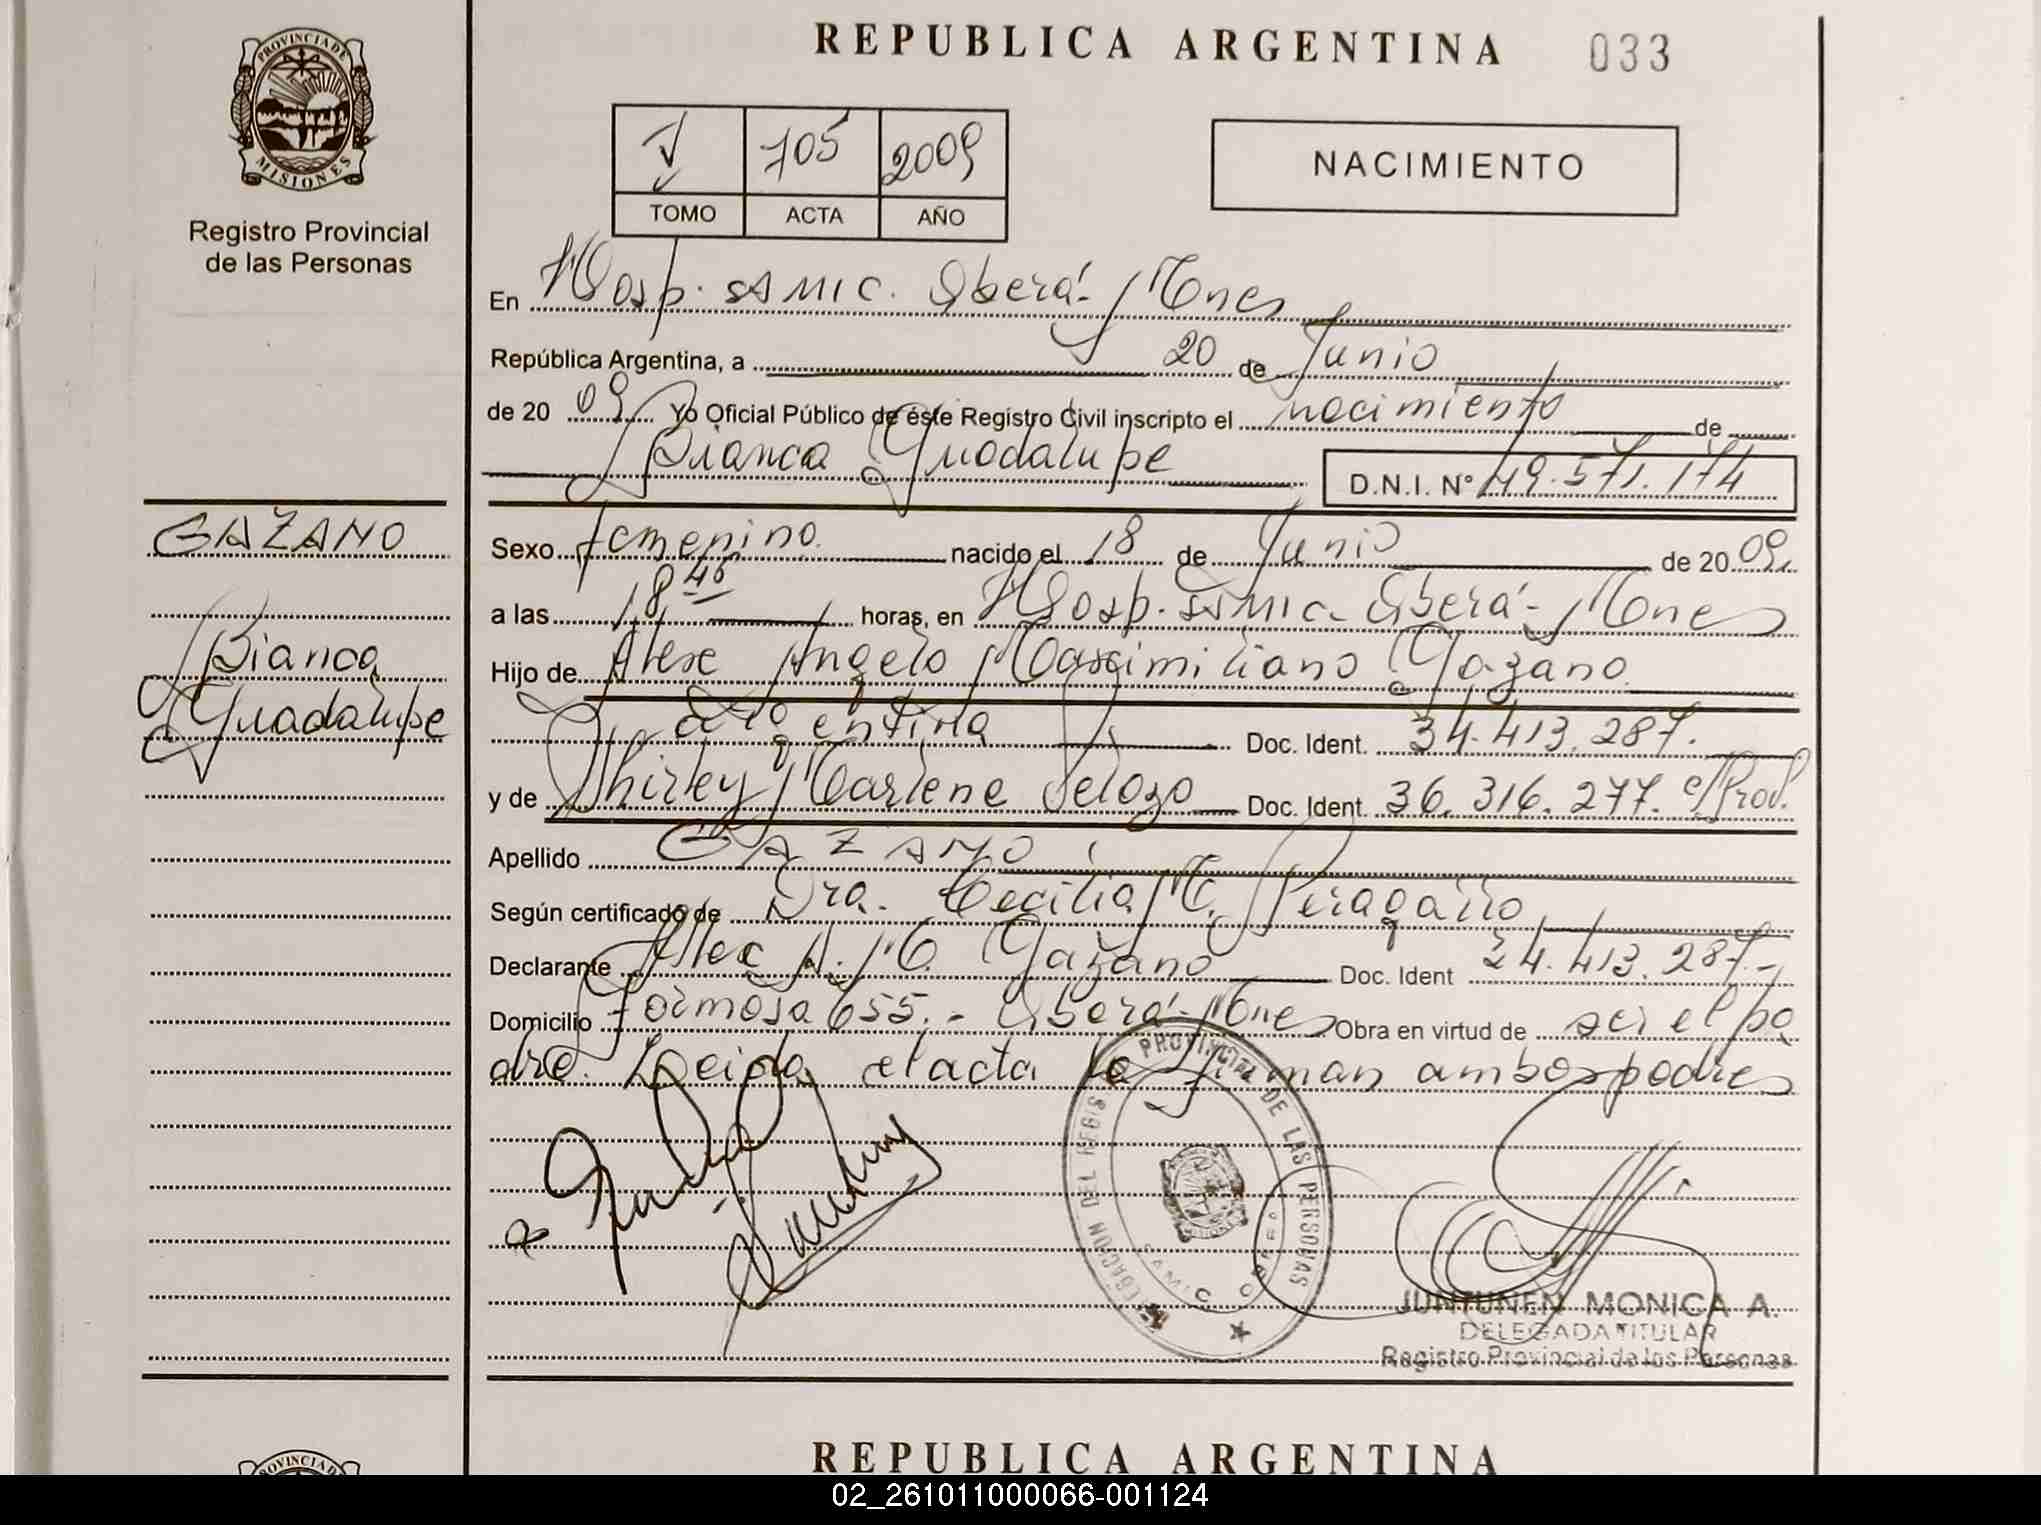 PROVINCIA DE
MISIONES
Registro Provincial
de las Personas
REPUBLICA ARGENTINA 033
V 705 2009
TOMO ACTA AÑO
NACIMIENTO
En Hosp. SAMIC. Oberá- Mnes
República Argentina, a 20 de Junio
de 20 09 Yo Oficial Público de éste Registro Civil inscripto el nacimiento de
Bianca Guadalupe D.N.I. Nº 49.571.174
GAZANO
Bianca
Guadalupe
Sexo femenino. nacido el 18 de Junio de 20 09.
a las 18 45 horas, en Hosp. SAMIC- Oberá- Mnes
Hijo de Alexe Angelo Massimiliano Gazano
argentina Doc. Ident. 34.413.287.
y de Shirley Marlene Velozo Doc. Ident. 36.316.277. c/Prod.
Apellido GAZANO
Según certificado de Dra. Cecilia M. Peragallo
Declarante A. M. Gazano Doc. Ident 34.413.287.-
Domicilio Formosa 655.- Oberá- Mnes Obra en virtud de ser el pa
dre. Leida el acta la firman ambos padres
DELEGACION DEL REGISTRO PROVINCIAL DE LAS PERSONAS
SAMIC OBERA
JUNTUNEN MONICA A.
DELEGADA TITULAR
Registro Provincial de las Personas
PROVINCIA D
REPUBLICA ARGENTINA
02_261011000066-001124